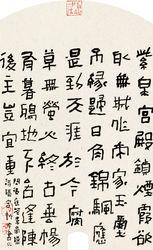 紫泉宮殿鎖煙霞欲
取蕪城作帝家玉璽
不緣歸日角錦颿應
是到天涯於今腐
草無螢火終古垂楊
有暮鴉地下若逢陳
後主豈宜重